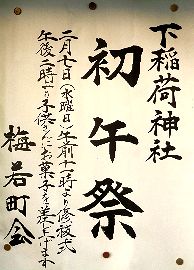 下稲荷神社
初午祭
二月七日(水曜日)午前十一時より修祓式
午後二時より子供さんにお菓子を差上げます
梅若町会